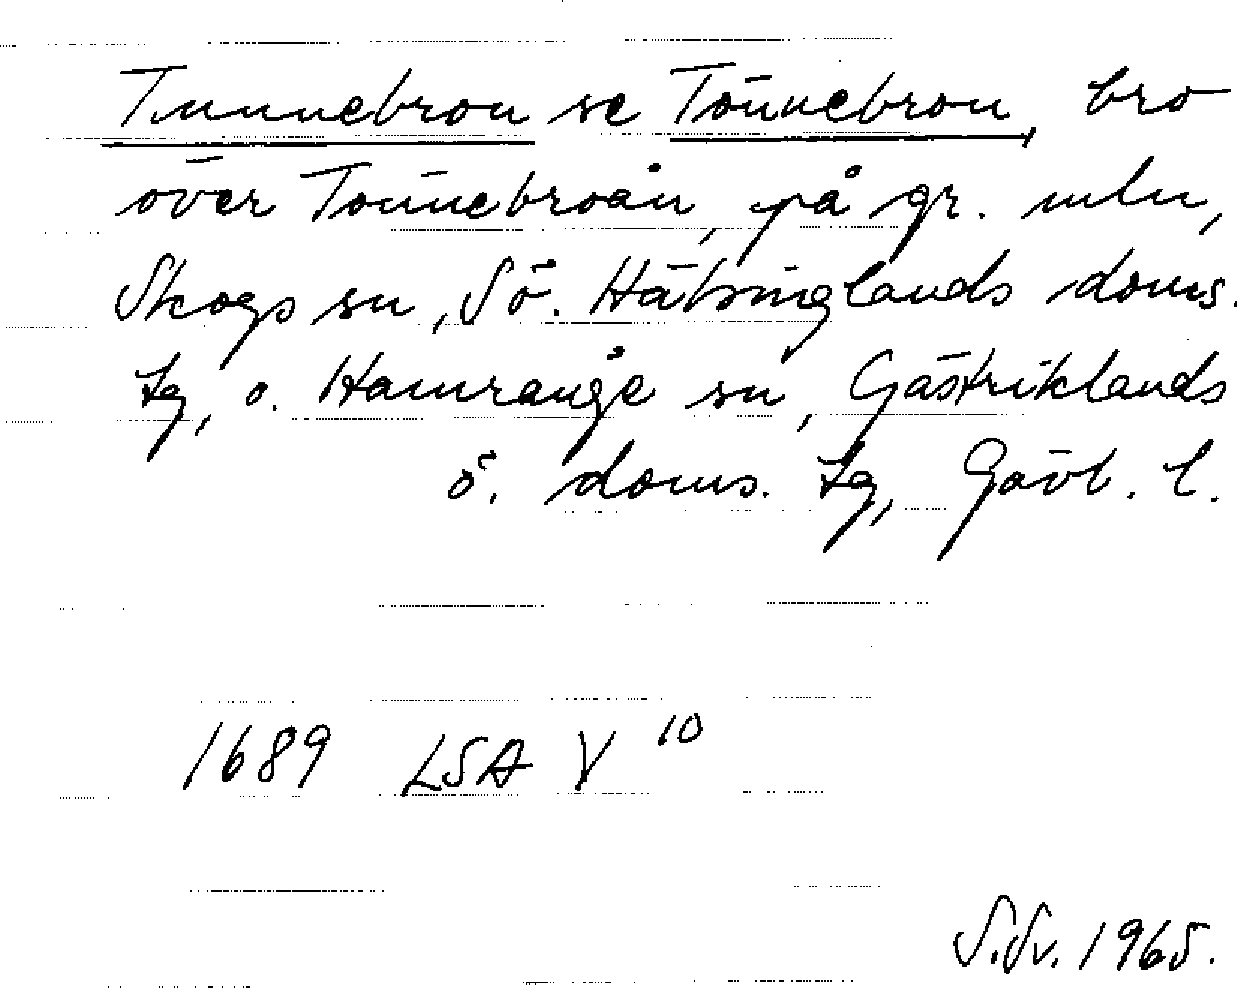 Tunnebron se Tönnebron, bro
över Tönnebroån, på gr. mln,
Skogs sn, Sö. Hälsinglands doms.
tg, o. Hamrånge sn, Gästriklands
ö. doms. tg, Gävl. l.
1689 LSA V 10
S.Sv. 1965.